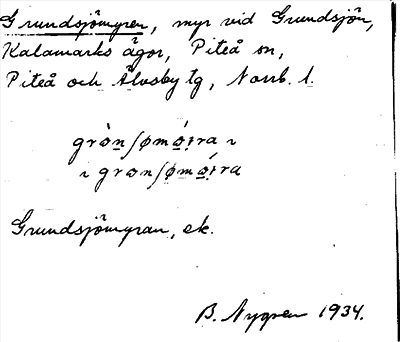 Grundsjömyren, myr vid Grundsjön,
Kalamarks ägor, Piteå sn,
Piteå och Älvsby tg, Norrb. l.
grò̀n ʃømó̱ɪra ı
ı gron ʃømó̱ɪra
Grundsjömyran, ek.
B. Nygren 1934.